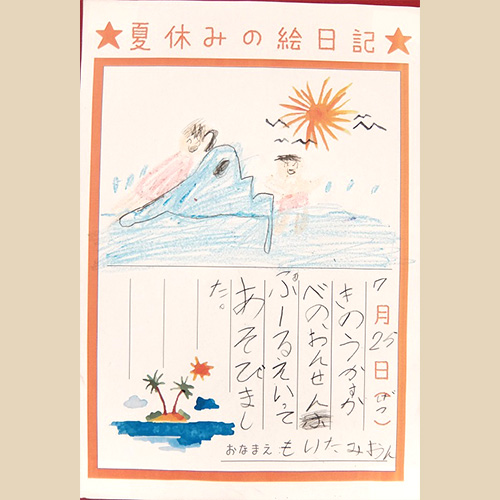 ★夏休みの絵日記★
7月25日(げつ)
きのうかすか
べのおんせん
ぷーるえいって
あそびまし
た。
おなまえ もりたみおん